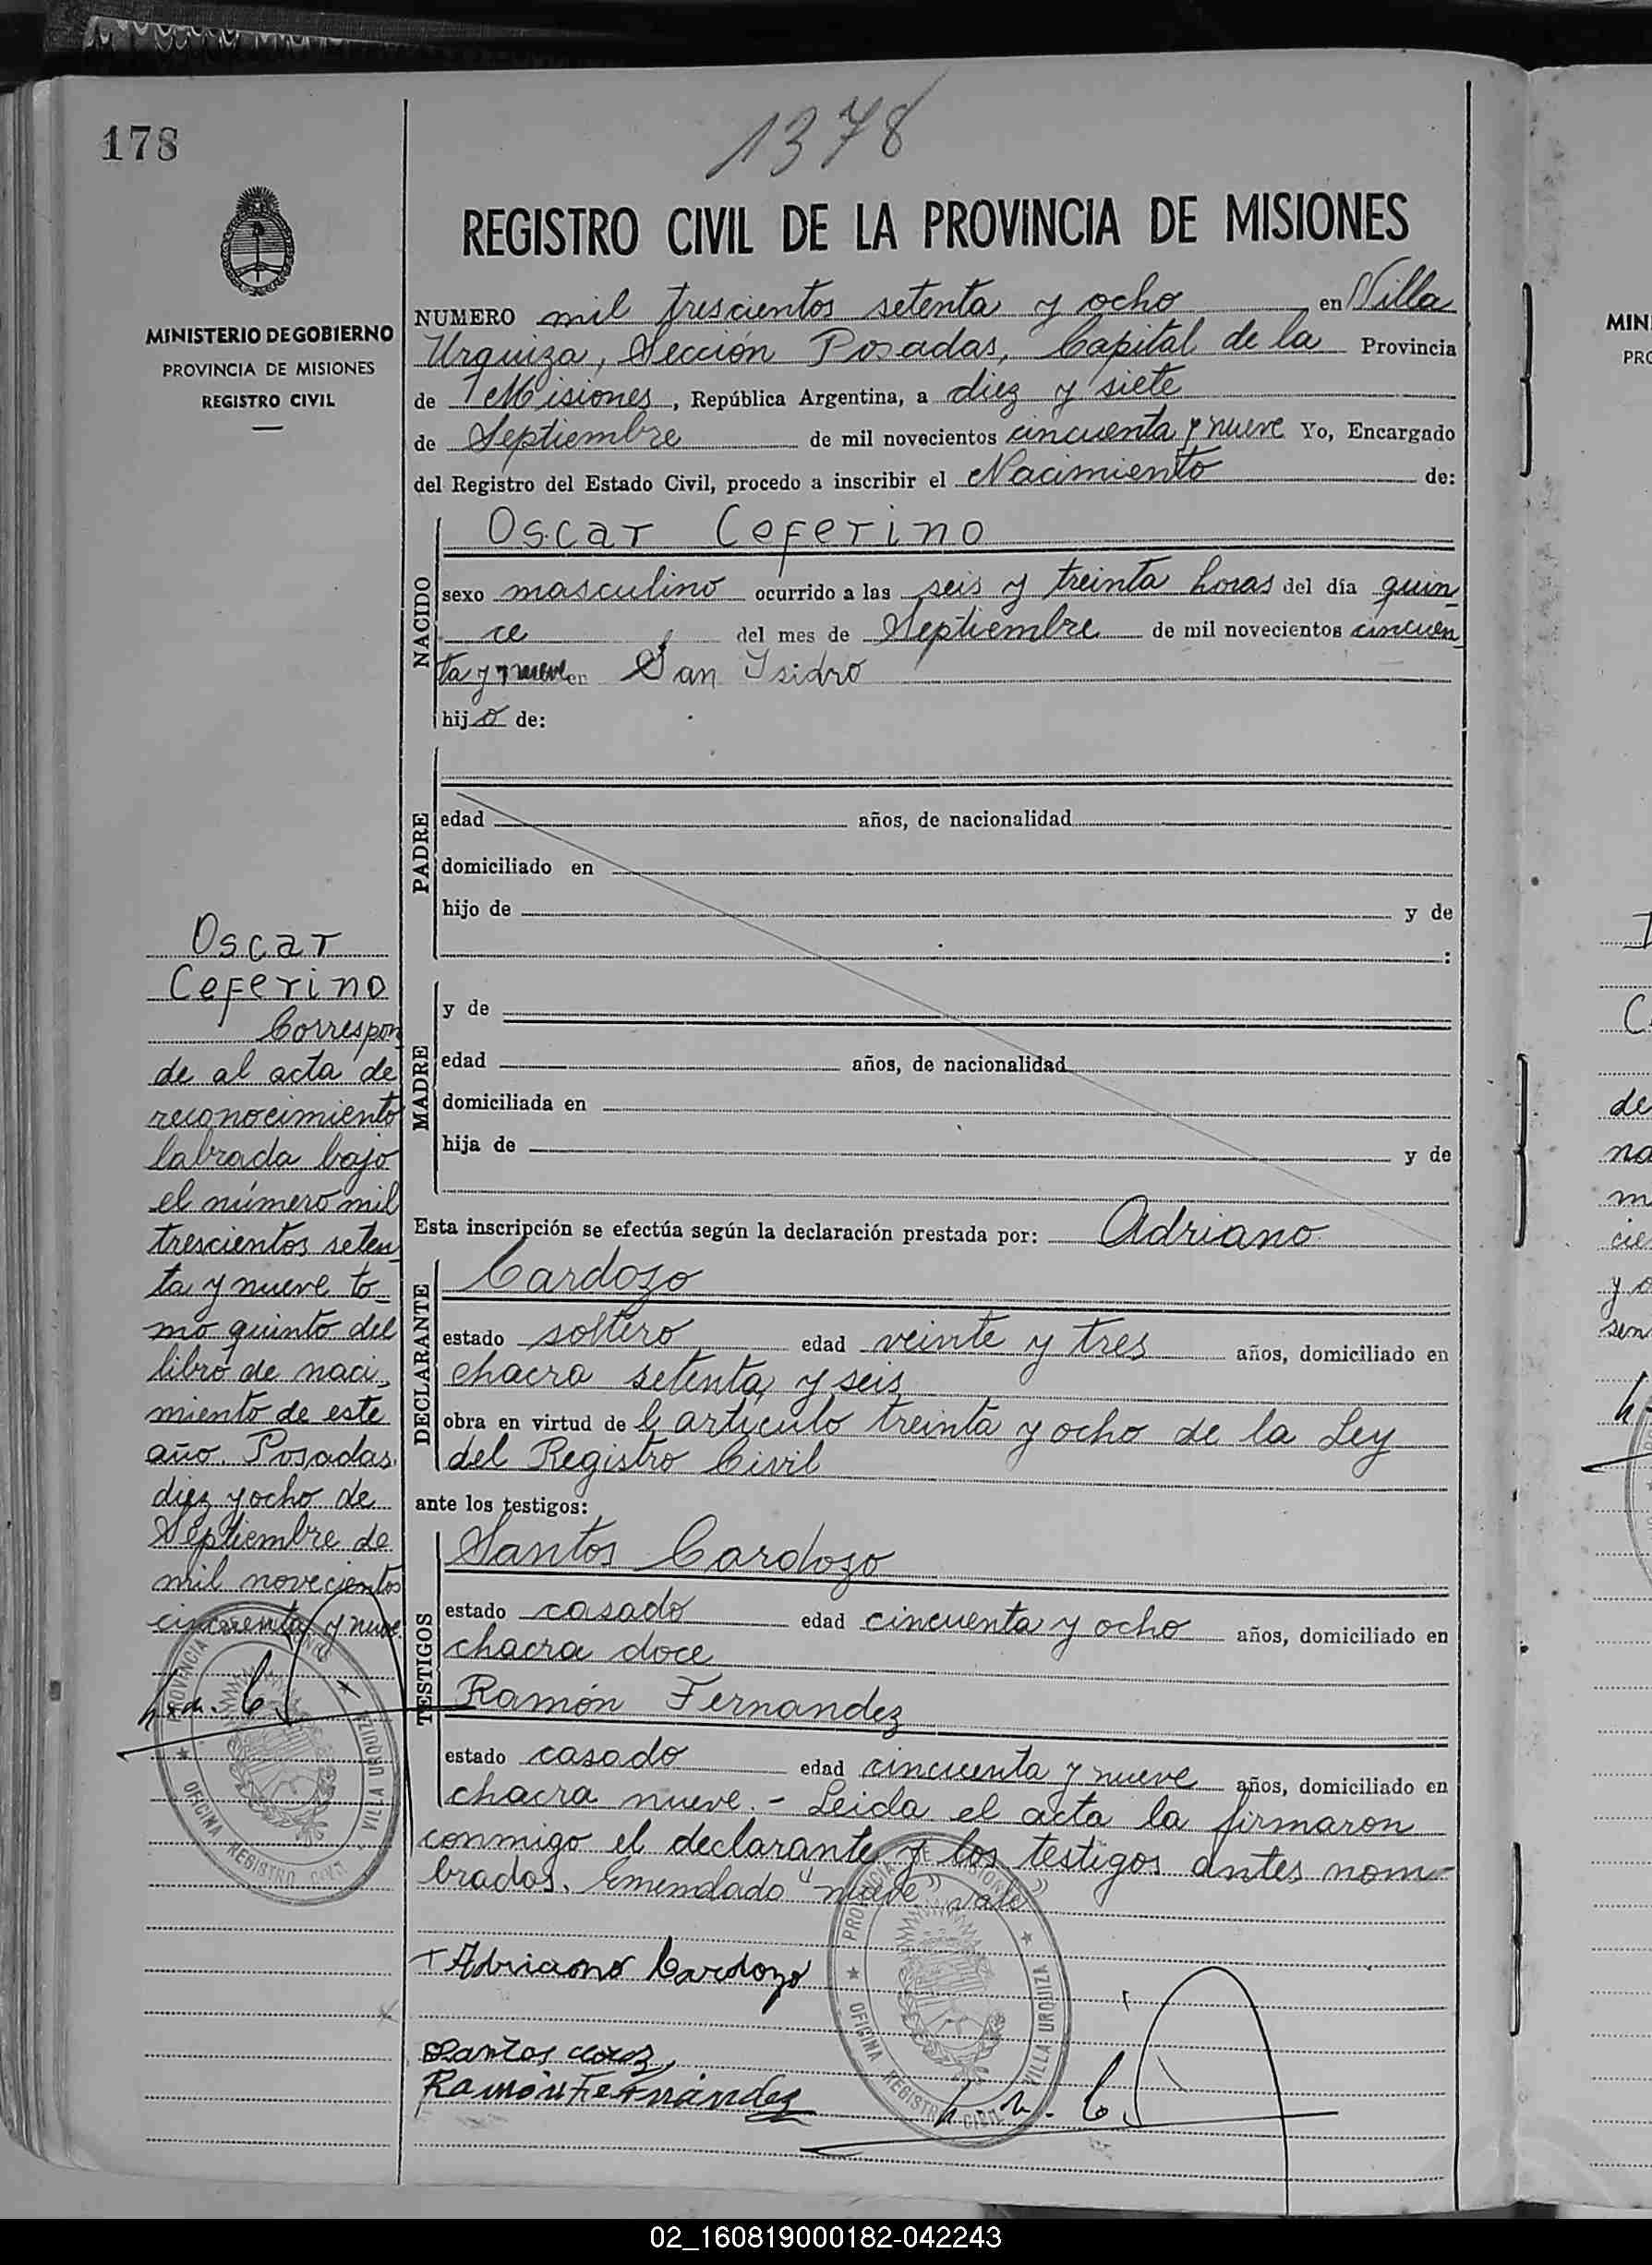 178
1378
MINISTERIO DE GOBIERNO
PROVINCIA DE MISIONES
REGISTRO CIVIL
REGISTRO CIVIL DE LA PROVINCIA DE MISIONES
NUMERO mil trescientos setenta y ocho en Villa
Urquiza, Sección Posadas, Capital de la Provincia
de Misiones, República Argentina, a diez y siete
de Septiembre de mil novecientos cincuenta y nueve Yo, Encargado
del Registro del Estado Civil, procedo a inscribir el Nacimiento de:
NACIDO
Oscar Ceferino
sexo masculino ocurrido a las seis y treinta horas del día quin-
ce del mes de Septiembre de mil novecientos cincuen-
ta y nueve en San Isidro
hijo de:
PADRE
edad años, de nacionalidad
domiciliado en
hijo de y de
:
MADRE
y de
edad años, de nacionalidad
domiciliada en
hija de y de
Esta inscripción se efectúa según la declaración prestada por: Adriano
DECLARANTE
Cardozo
estado soltero edad veinte y tres años, domiciliado en
chacra setenta y seis
obra en virtud del artículo treinta y ocho de la Ley
del Registro Civil
ante los testigos:
TESTIGOS
Santos Cardozo
estado casado edad cincuenta y ocho años, domiciliado en
chacra doce
Ramón Fernandez
estado casado edad cincuenta y nueve años, domiciliado en
chacra nueve.- Leida el acta la firmaron
conmigo el declarante y los testigos antes nom-
brados. Emendado "nueve" vale
Adriano Cardozo
Santos
Ramón Fernández
PROVINCIA DE MISIONES
OFICINA REGISTRO CIVIL
VILLA URQUIZA
Oscar
Ceferino
Correspon-
de al acta de
reconocimiento
labrada bajo
el número mil
trescientos seten-
ta y nueve to-
mo quinto del
libro de naci-
miento de este
año. Posadas,
diez y ocho de
Septiembre de
mil novecientos
cincuenta y nueve
PROVINCIA
OFICINA REGISTRO CIVIL
VILLA URQUIZA
MIN
PRO
de
na
m
cie
y o
sen
02_160819000182-042243